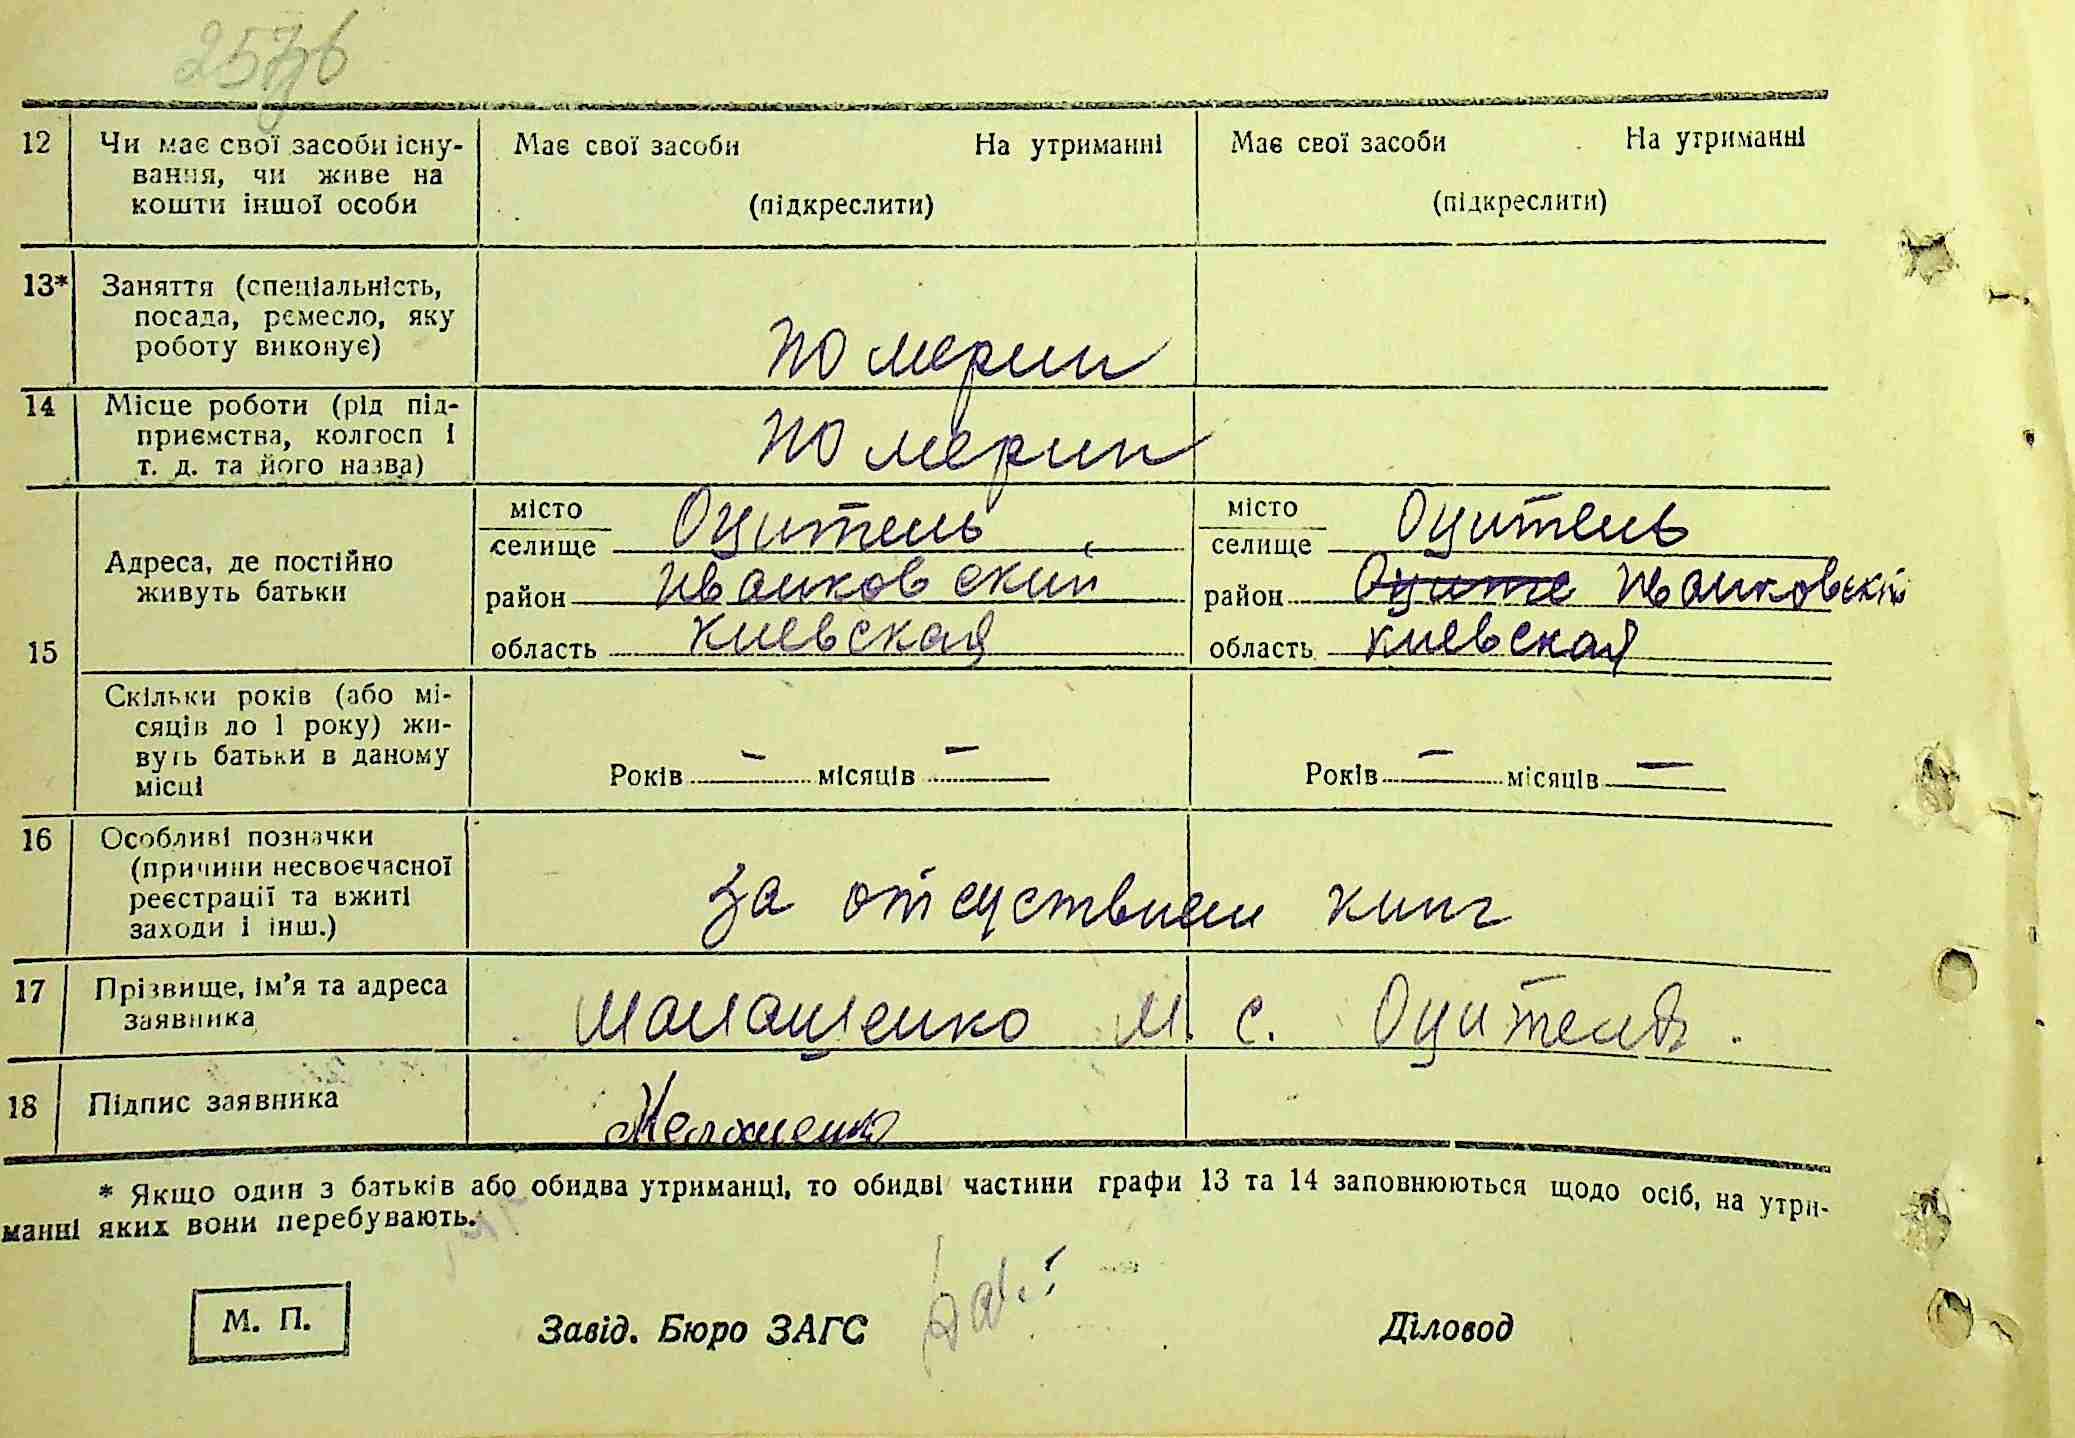 12 Чи має свої засоби існу- Має свої засоби На утриманні Має свої засоби На утриманні
вання, чи живе на
кошти іншої особи (підкреслити) (підкреслити)
13* Заняття (спеціальність,
посада, ремесло, яку
роботу виконує) померии
14 Місце роботи (рід під-
приємства, колгосп і померии
т. д. та його назва)
місто Оцитель місто Оцитель
селище селище
Адреса, де постійно
живуть батьки
район Иванковский район Оците Иванковский
15 область Киевская область Киевская
Скільки років (або мі-
сяців до 1 року) жи-
вуть батьки в даному
місці Років – місяців – Років – місяців –
16 Особливі позначки
(причини несвоєчасної
реєстрації та вжиті за отсуствием книг
заходи і інш.)
17 Прізвище, ім’я та адреса
заявника Малащенко М. с. Оцитель.
18 Підпис заявника
* Якщо один з батьків або обидва утриманці, то обидві частини графи 13 та 14 заповнюються щодо осіб, на утри-
манні яких вони перебувають.
М. П. Завід. Бюро ЗАГС Діловод